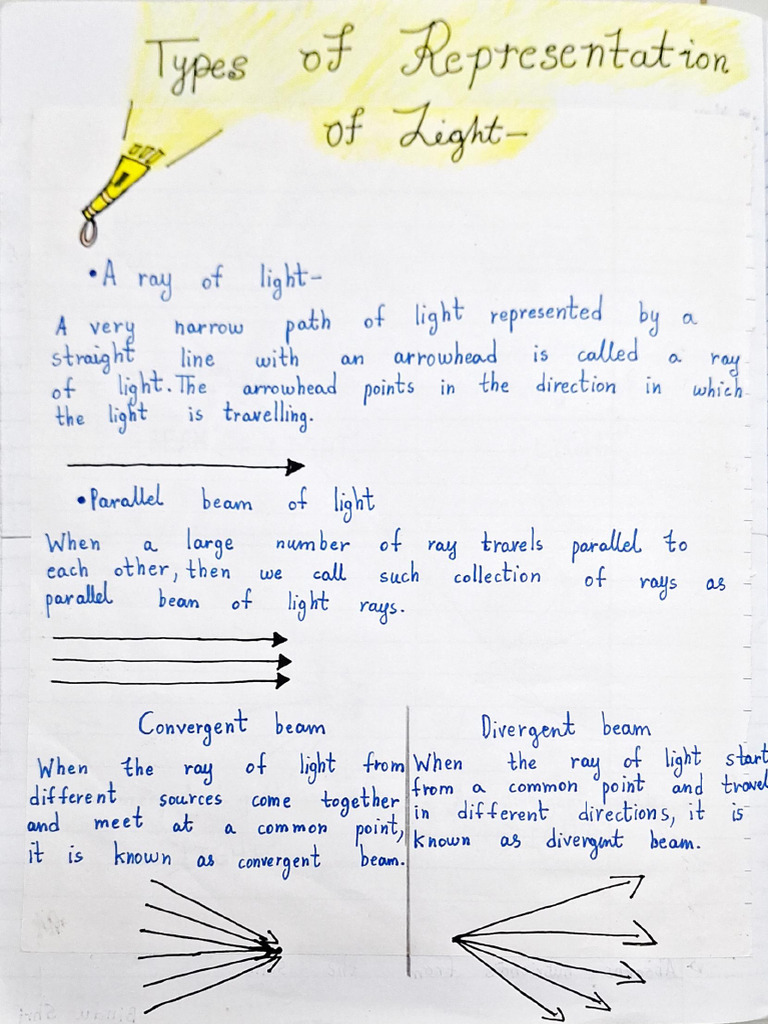 Types of Representation
of Light-
•A ray of light-
A very narrow path of light represented by a
straight line with an arrowhead is called a ray
of light. The arrowhead points in the direction in which
the light is travelling.
•Parallel beam of light
When a large number of ray travels parallel to
each other, then we call such collection of rays as
parallel bean of light rays.
Convergent beam
When the ray of light from
different sources come together
and meet at a common point,
it is known as convergent beam.
Divergent beam
When the ray of light start
from a common point and travel
in different directions, it is
known as divergent beam.